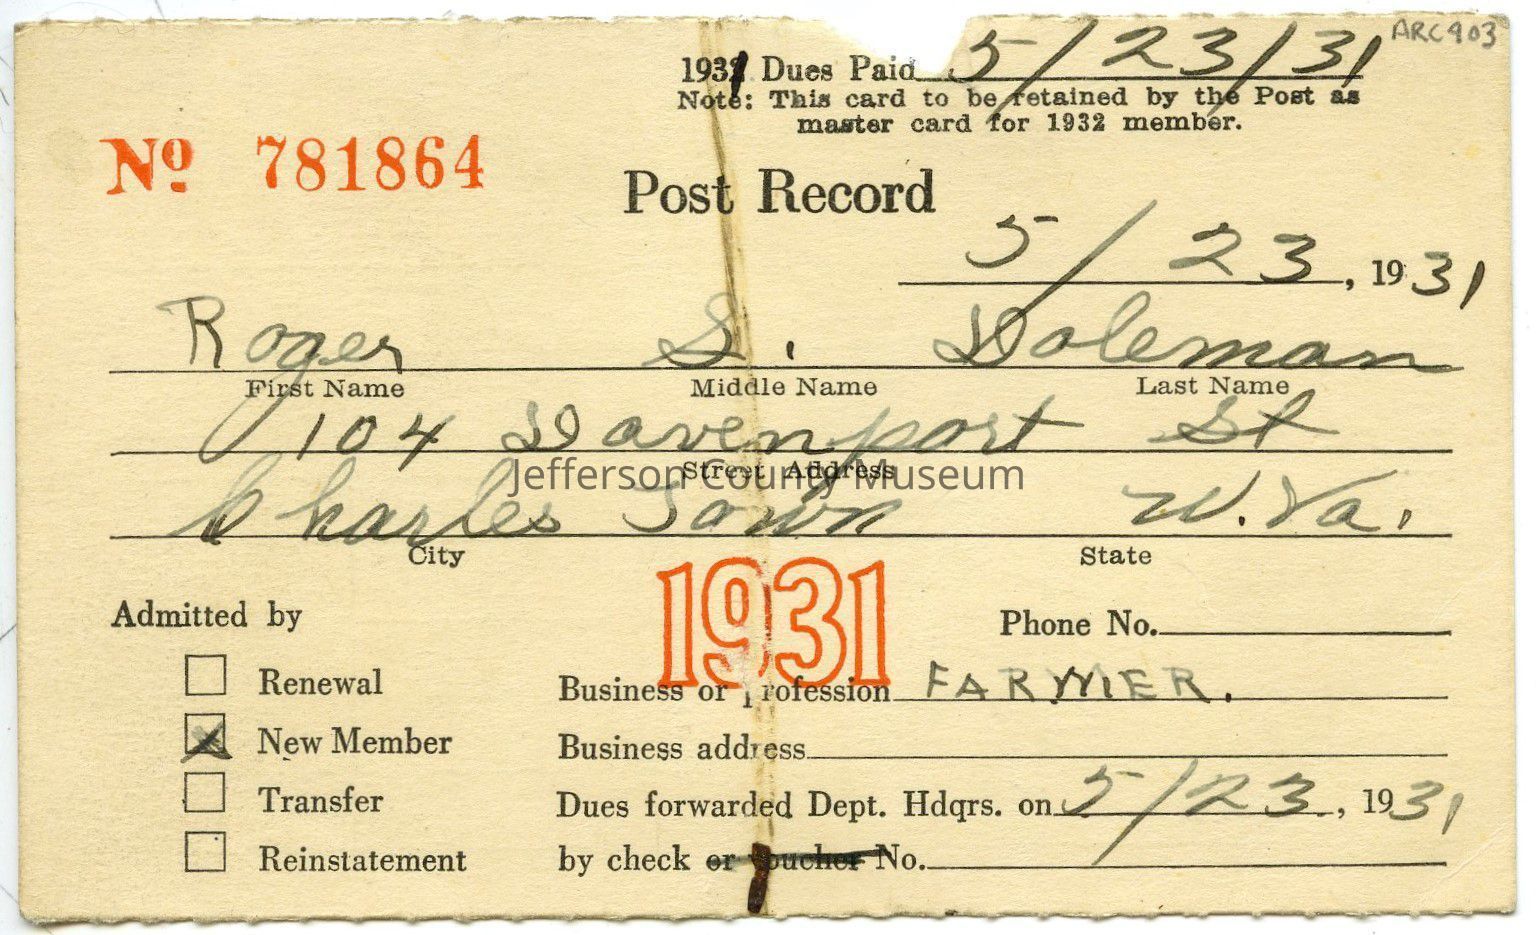 ARC903
1931 Dues Paid 5/23/31
Note: This card to be retained by the Post as
master card for 1932 member.
No 781864
Post Record
5/23, 1931
Roger S. Doleman
First Name Middle Name Last Name
104 Davenport St
Street Address
Jefferson County Museum
Charles Town W.Va.
City State
1931
Admitted by Phone No.
Renewal Business or Profession FARMER.
New Member Business address
Transfer Dues forwarded Dept. Hdqrs. on 5/23, 1931
Reinstatement by check or voucher No.